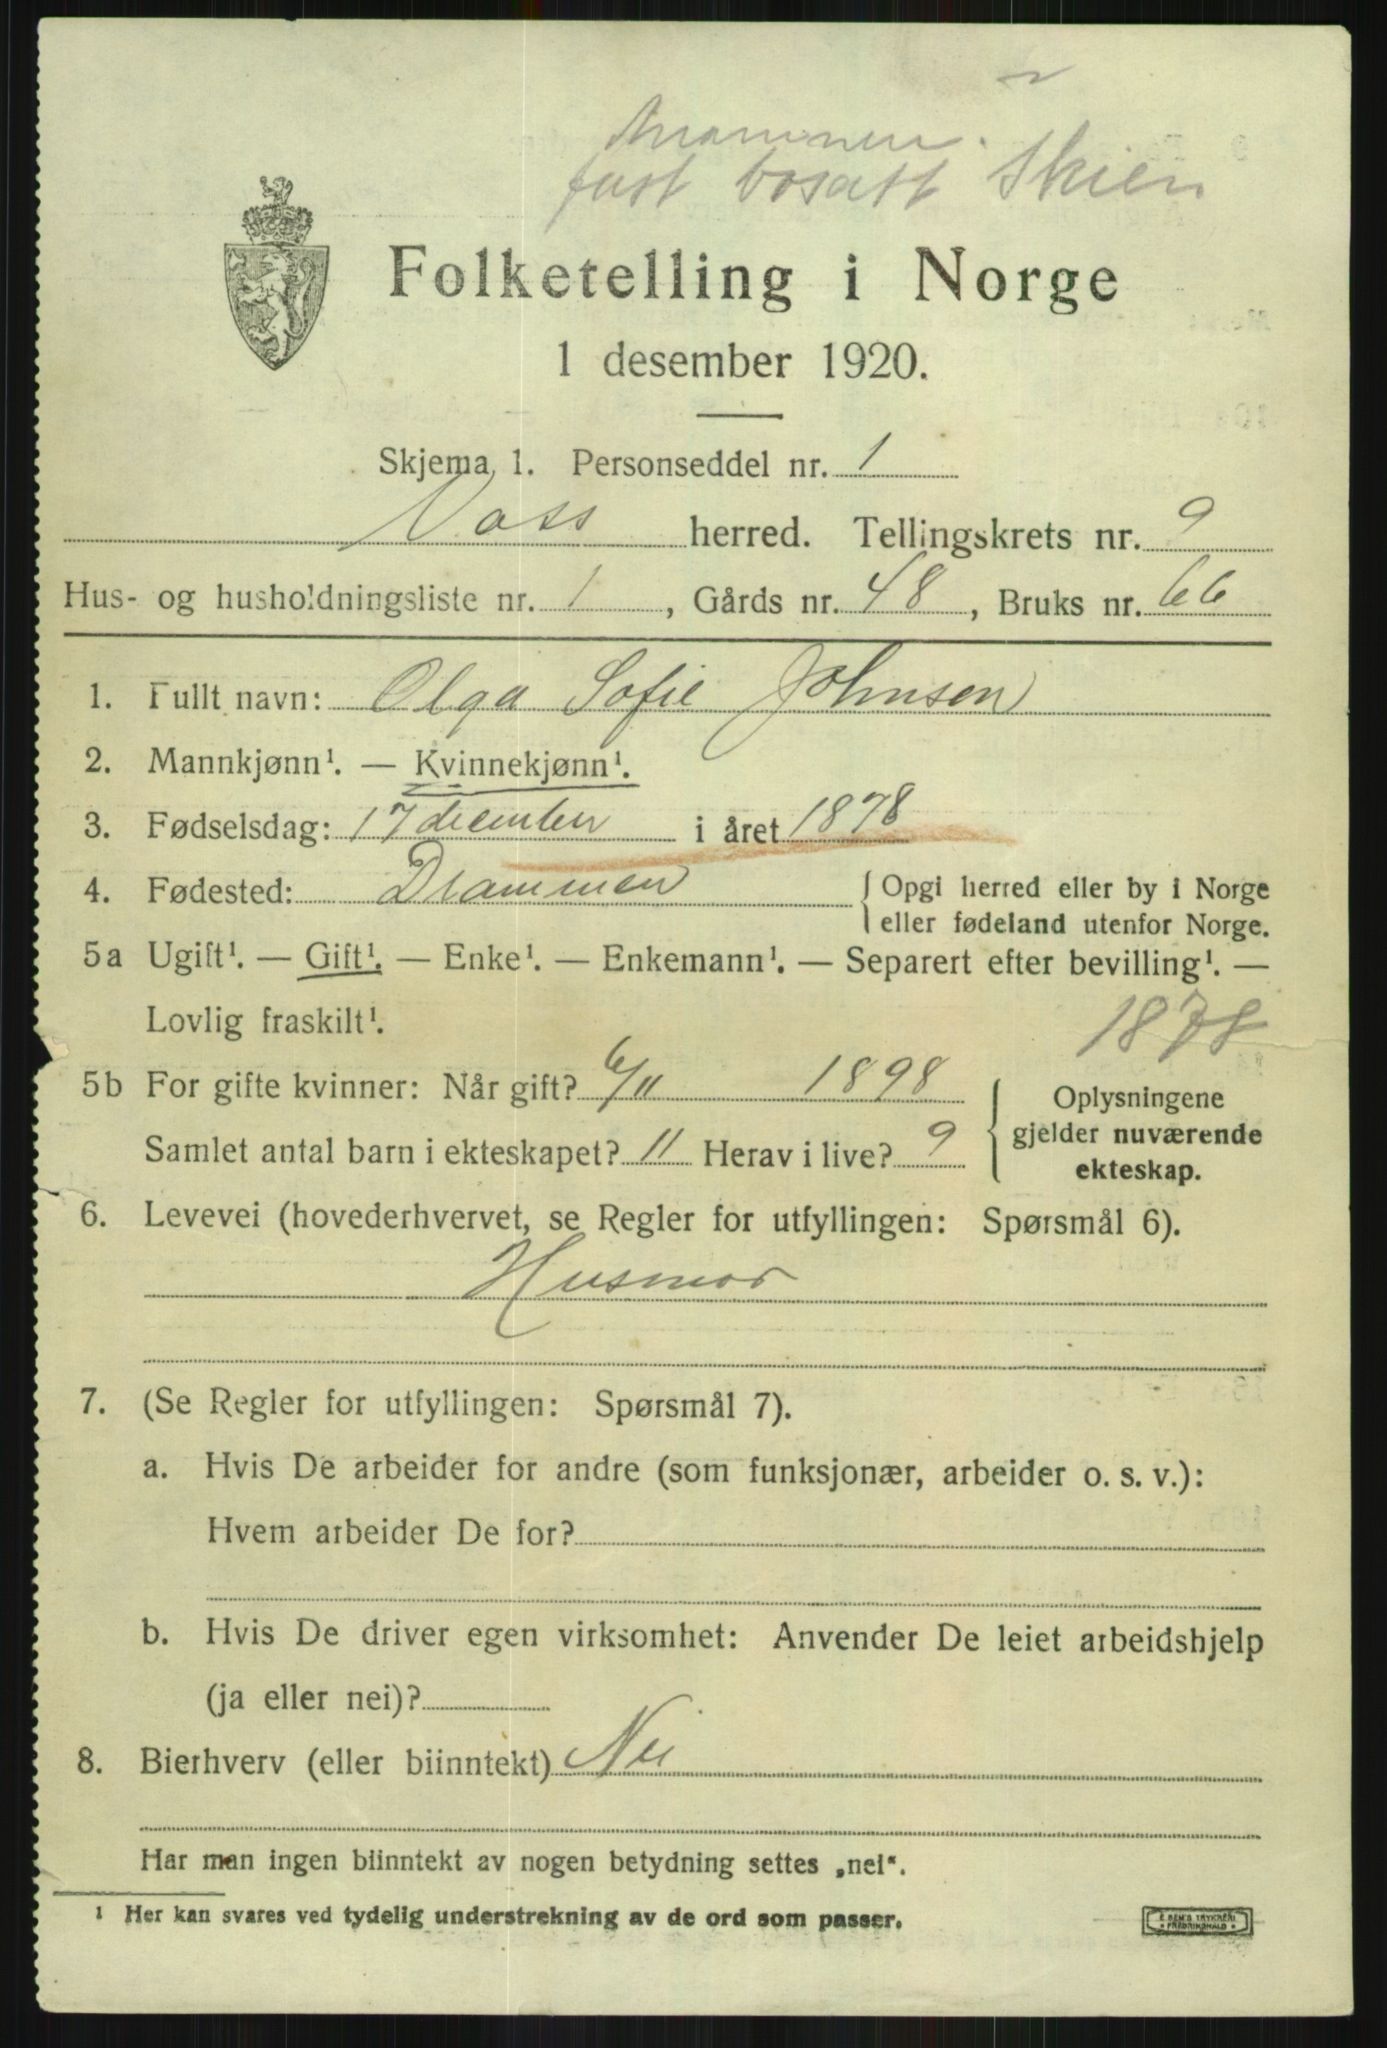 Mannen
fast bosatt Skien
Folketelling i Norge
1 desember 1920.
Skjema 1. Personseddel nr. 1
Voss herred. Tellingskrets nr. 9
Hus- og husholdningsliste nr. 1, Gårds nr. 48, Bruks nr. 66
1. Fullt navn: Olga Sofie Johnsen
2. Mannkjønn¹. — Kvinnekjønn¹.
3. Fødselsdag: 17 december i året 1878
4. Fødested: Drammen { Opgi herred eller by i Norge
eller fødeland utenfor Norge.
5a Ugift¹. — Gift¹. — Enke¹. — Enkemann¹. — Separert efter bevilling¹. —
Lovlig fraskilt¹.
1878
5b For gifte kvinner: Når gift? 6/11 1898
Samlet antal barn i ekteskapet? 11 Herav i live? 9
{ Oplysningene
gjelder nuværende
ekteskap.
6. Levevei (hovederhvervet, se Regler for utfyllingen: Spørsmål 6).
Husmor
7. (Se Regler for utfyllingen: Spørsmål 7).
a. Hvis De arbeider for andre (som funksjonær, arbeider o. s. v.):
Hvem arbeider De for?
b. Hvis De driver egen virksomhet: Anvender De leiet arbeidshjelp
(ja eller nei)?
8. Bierhverv (eller biinntekt) Nei
Har man ingen biinntekt av nogen betydning settes „nei“.
¹ Her kan svares ved tydelig understrekning av de ord som passer.
TRYKKERI
FREDRIKSHALD